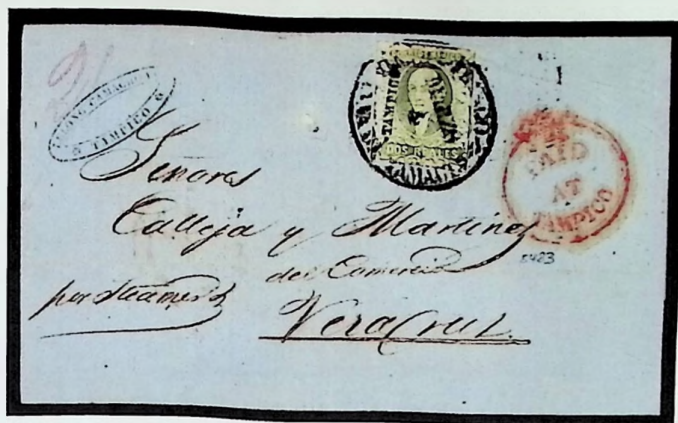 TAMPICO
TAMPICO
DOS REALES
PAID
AT
TAMPICO
Señores
Calleja y Martinez
del Comercio
5423
por steamer
Vera Cruz.